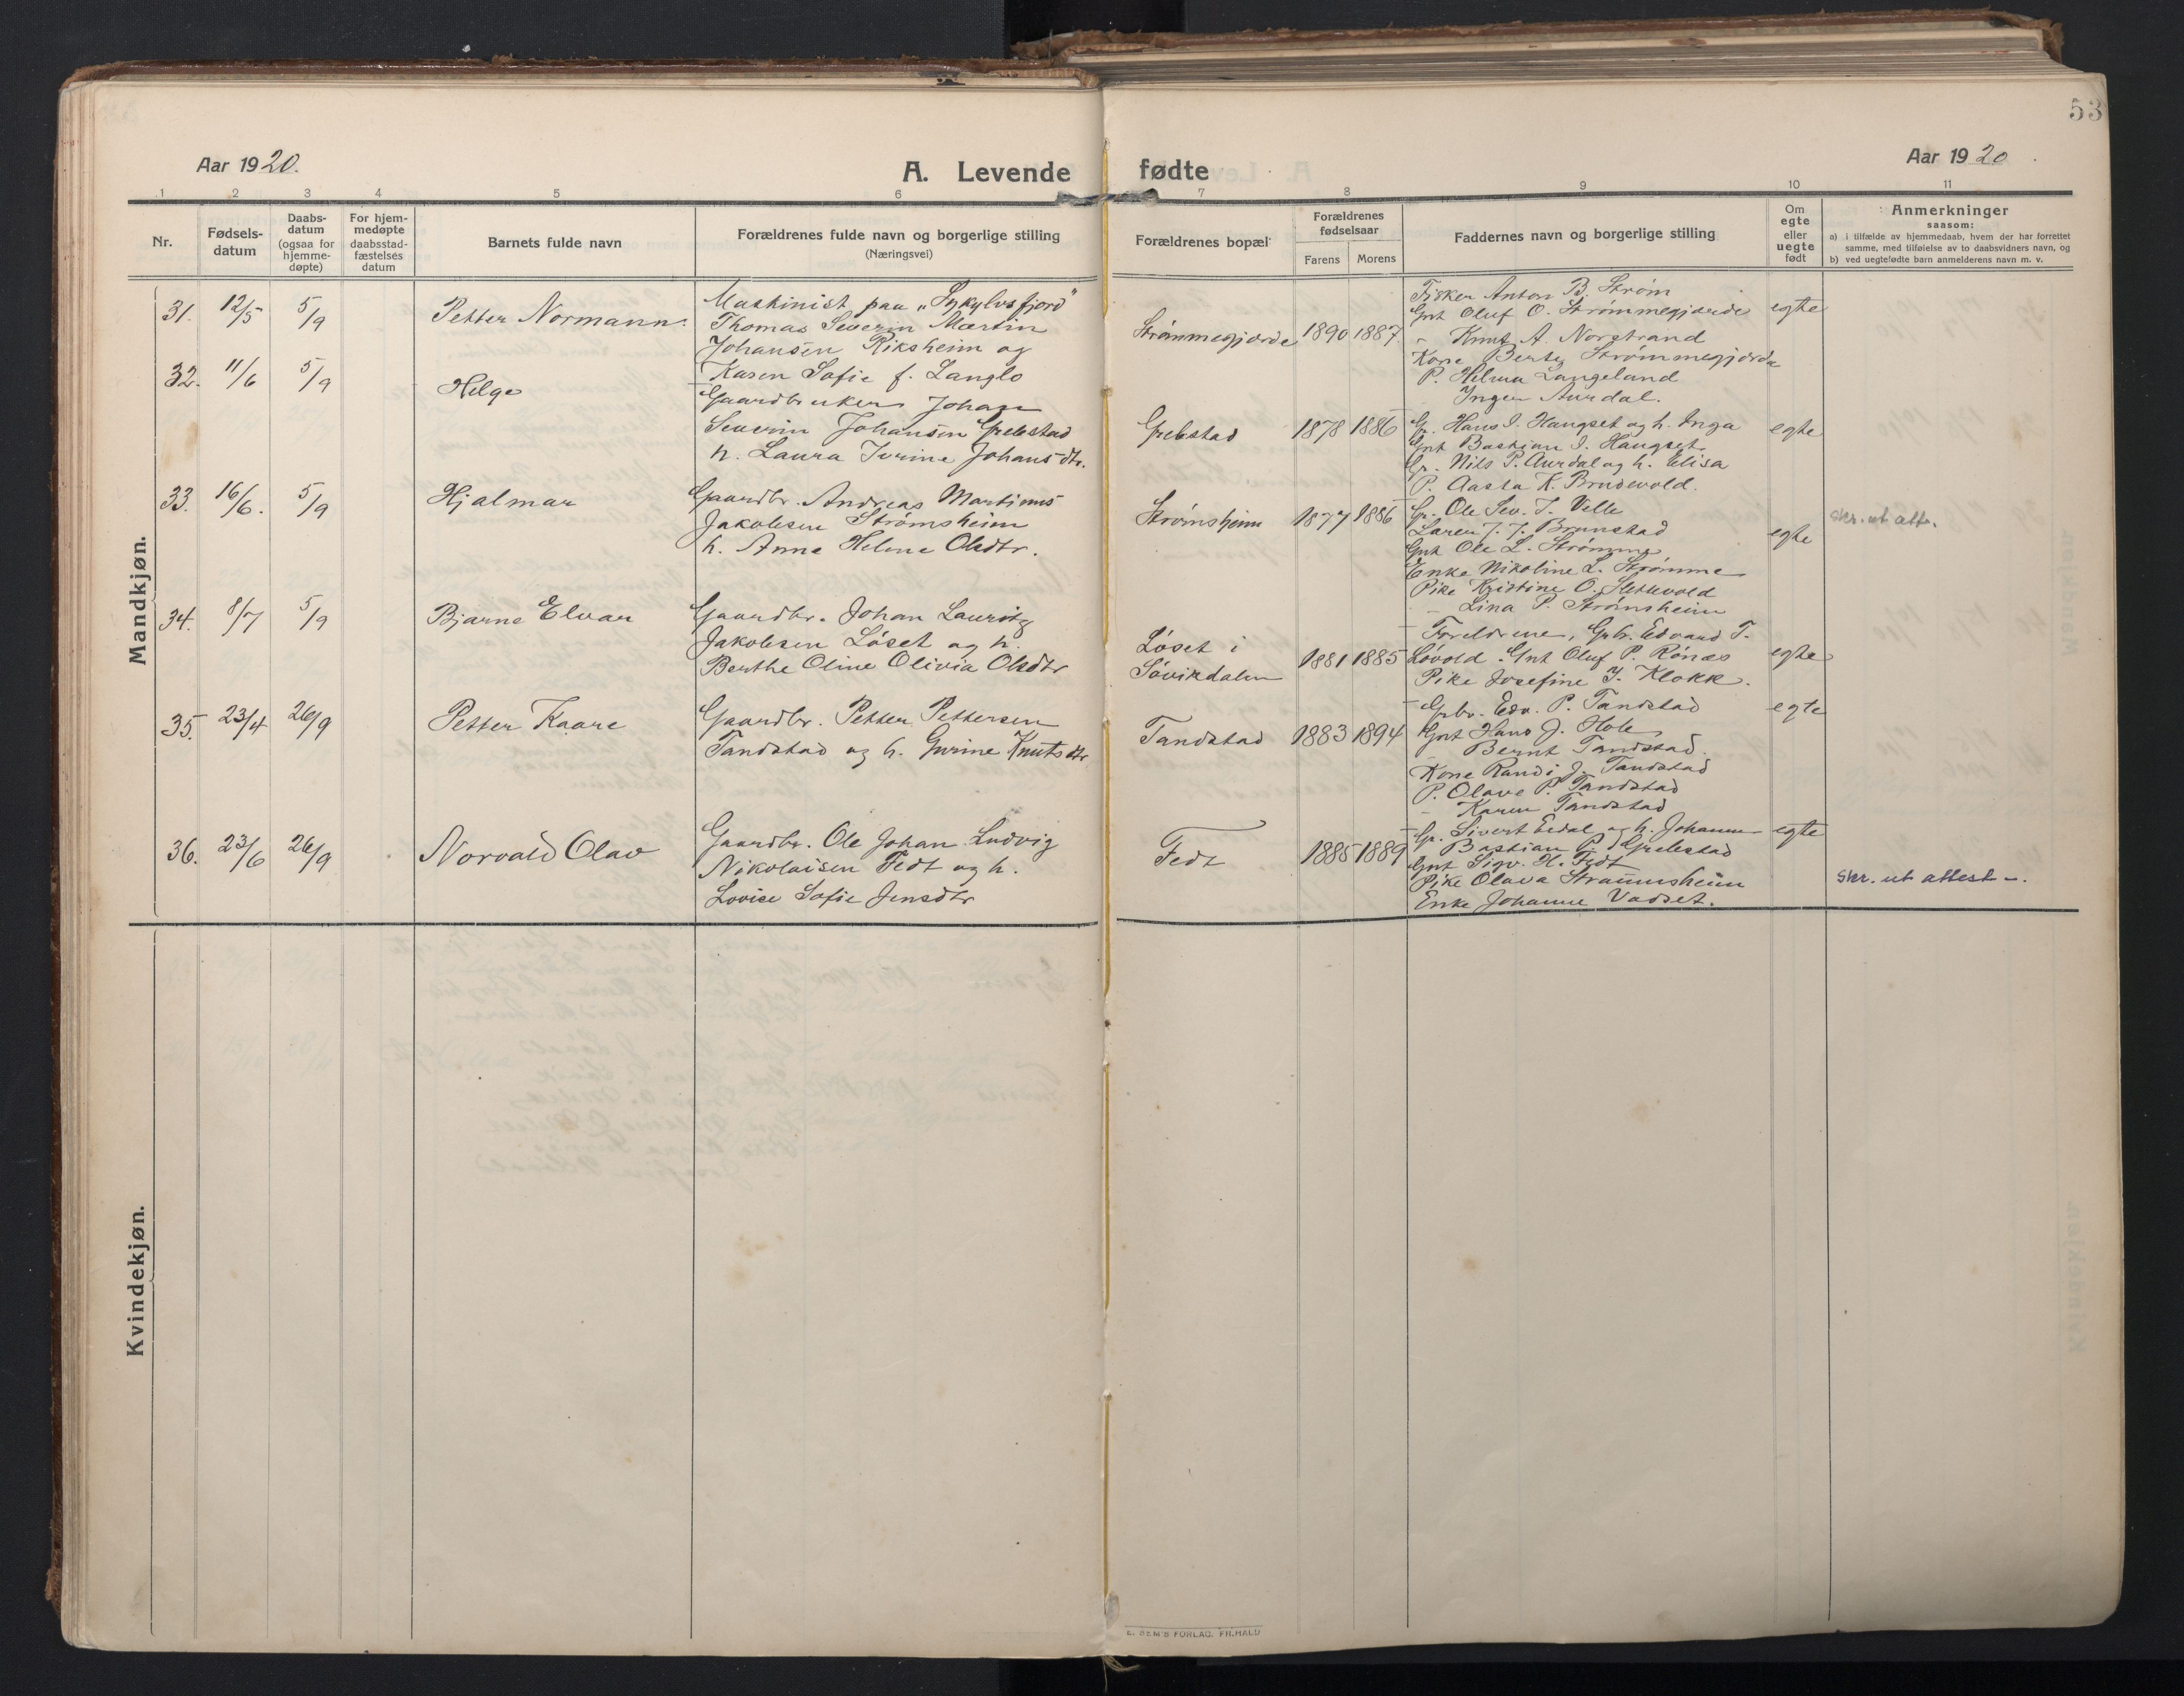 53
Aar 1920.
A. Levende
fødte
Aar 1920.
1 2 3 4 5 6 7 8 9 10 11
Nr.
Fødsels-
datum
Daabs-
datum
(ogsaa for
hjemme-
døpte)
For hjem-
medøpte
daabsstad-
fæstelses
datum
Barnets fulde navn
Forældrenes fulde navn og borgerlige stilling
(Næringsvei)
Forældrenes bopæl
Forældrenes
fødselsaar
Farens Morens
Faddernes navn og borgerlige stilling
Om
egte
eller
uegte
født
Anmerkninger
saasom:
a) i tilfælde av hjemmedaab, hvem der har forrettet
samme, med tilføielse av to daabsvidners navn, og
b) ved uegtefødte barn anmelderens navn m. v.
Mandkjøn.
31. 12/5 5/9 Petter Normann.
Maskinist paa "Sykylvsfjord"
Thomas Severin Martin
Johansen Riksheim og
Karen Sofie f. Langlo
Strømmegjerde 1890 1887
Fisker Anton B. Strøm
Gnt Oluf O. Strømmegjerde
" Knut A. Norstrand
Kone Berte Strømmegjerde
P. Helma Langeland
Inger Aurdal.
egte
32. 11/6 5/9 Helge
Gaardbruker Johan
Severin Johansen Grebstad
h. Laura Ivrine Johansdtr.
Grebstad 1878 1886
Gr. Hans I. Haugset og h. Inga
Gnt Bastian I. Haugset
Gr. Nils P. Aurdal og h. Elisa
P. Aasta K. Brudevold.
egte
33. 16/6. 5/9 Hjalmar
Gaardbr. Andreas Martinus
Jakobsen Strømsheim
h. Anne Helene Olsdtr.
Strømsheim 1877 1886
Gr. Ole Sev. I. Velle
Laren J. J. Brunstad
Gnt Ole L. Strømme
Enke Nikoline L. Strømme
Pike Kristine O. Slettevold
- Lina P. Strømsheim
egte
skr. ut att.
34. 8/7 5/9 Bjarne Elvar
Gaardbr. Johan Lauritz
Jakobsen Løset og h.
Berthe Oline Olivia Olsdtr
Løset i
Søvikdalen 1881 1885
Foreldrene, Grbr. Edvard T.
Løvold. Gnt Oluf P. Rónæs
Pike Josefine J. Klokk.
egte
35. 23/4 26/9 Petter Kaare
Gaardbr. Petter Pettersen
Tandstad og h. Gurine Knutsdtr
Tandstad 1883 1894
Grbr. Edv. P. Tandstad
Gnt Hans J. Hole
Bernt Tandstad.
Kone Randi J. Tandstad
P. Olave P. Tandstad
- Karen Tandstad
egte
36. 23/6 26/9 Norvald Olav
Gaardbr. Ole Johan Ludvig
Nikolaisen Fedt og h.
Lovise Sofie Jensdtr
Fedt 1885 1889
Gr. Sivert Eidal og h. Johanne
Bastian P. Grebstad
Gnt Sigv. H. Fedt
Pike Olava Straumsheim
Enke Johanne Vadset.
egte
skr. ut attest -.
Kvindekjøn.
E. SEM'S FORLAG. FR. HALD